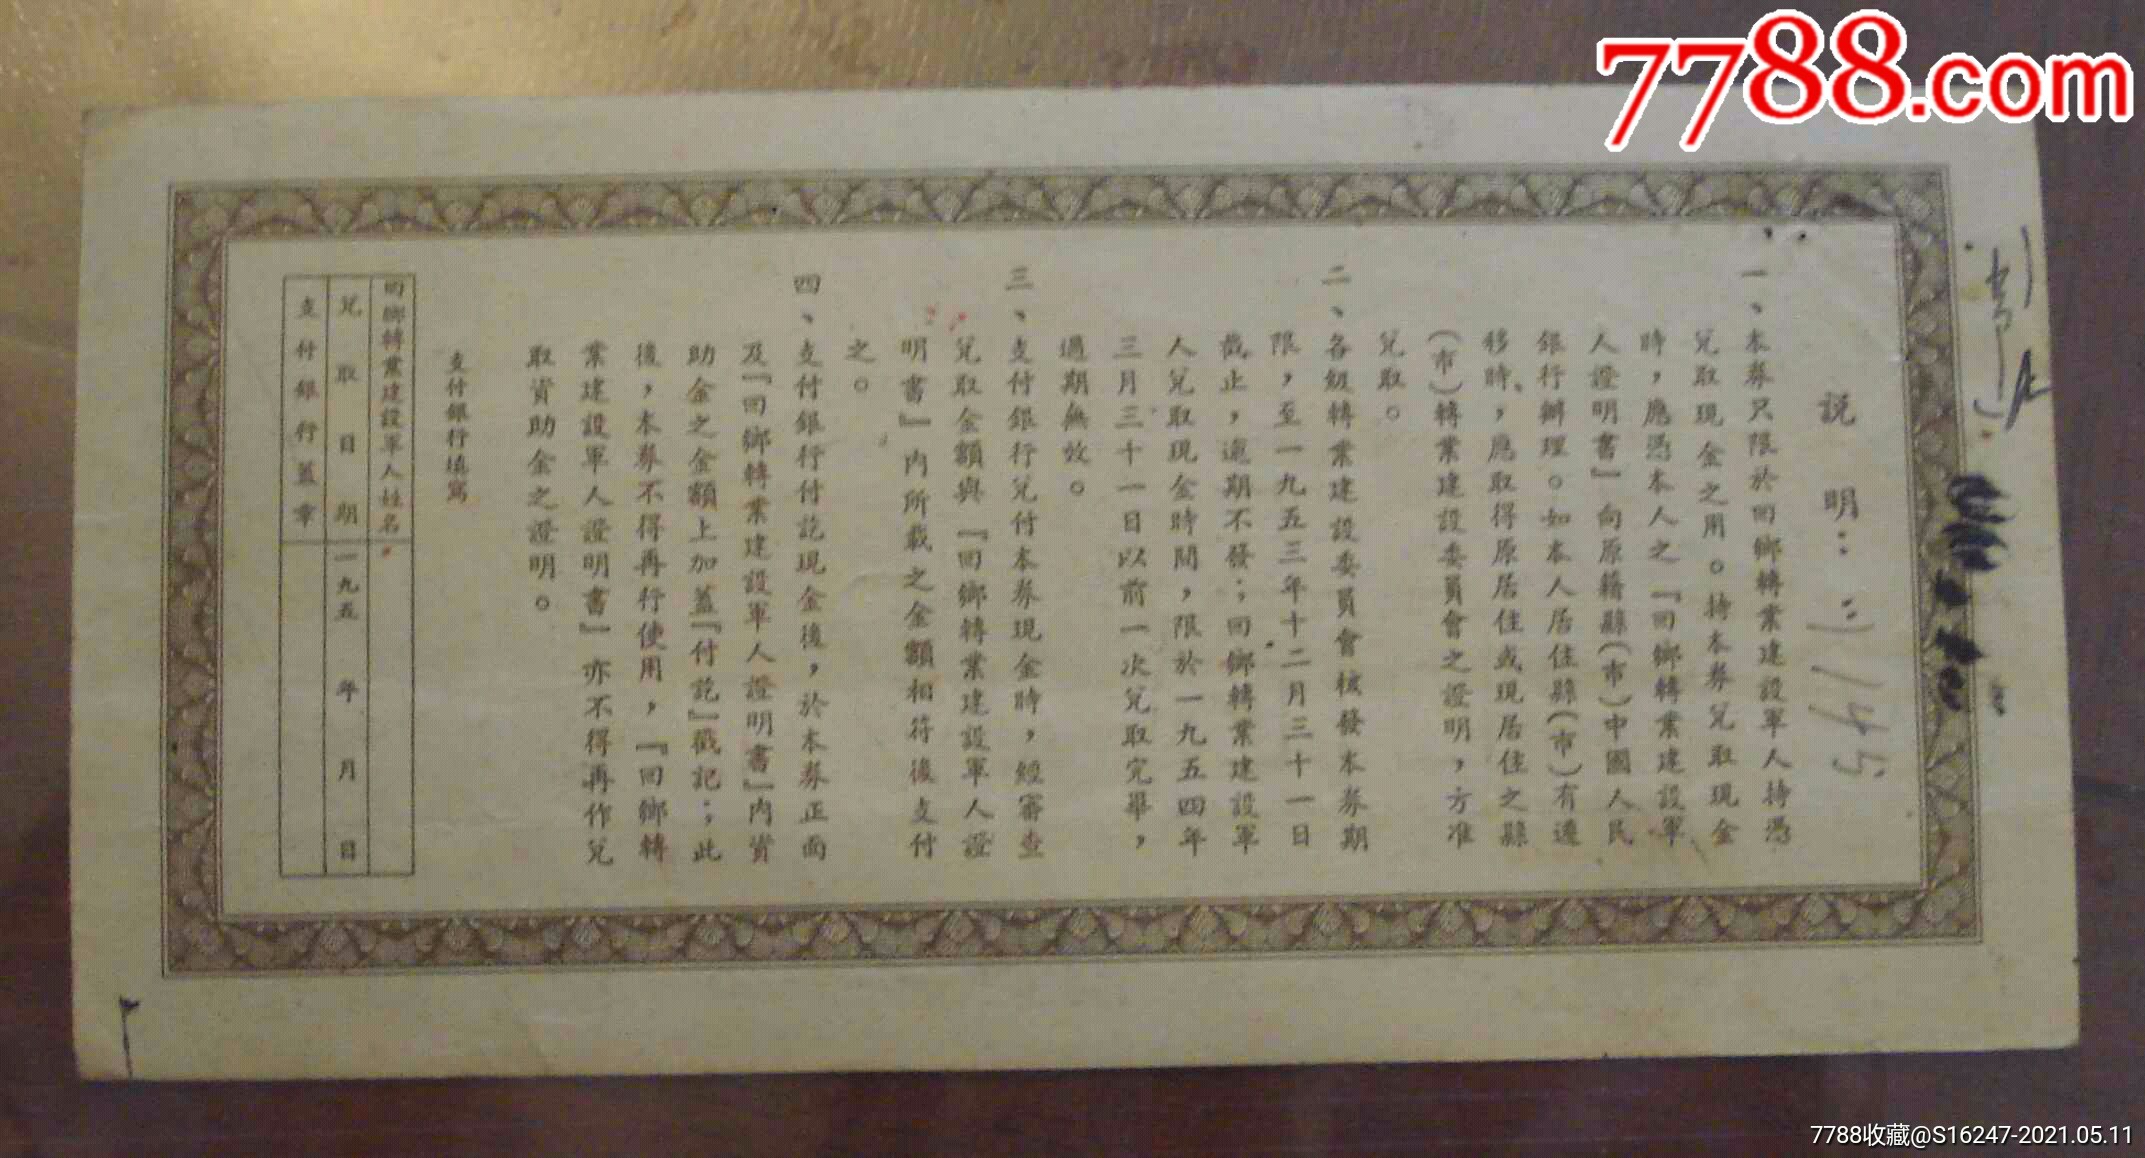 7788.com
说明：
1145
一、本券只限於回鄉轉業建設軍人持憑
兌取現金之用。持本券兌取現金
時，應憑本人之『回鄉轉業建設軍
人證明書』向原籍縣（市）中國人民
銀行辦理。如本人居住縣（市）有遷
移時，應取得原居住或現居住之縣
（市）轉業建設委員會之證明，方准
兌取。
二、各級轉業建設委員會核發本券期
限，至一九五三年十二月三十一日
截止，逾期不發；回鄉轉業建設軍
人兌取現金時間，限於一九五四年
三月三十一日以前一次兌取完畢，
過期無效。
三、支付銀行兌付本券現金時，經審查
兌取金額與『回鄉轉業建設軍人證
明書』內所載之金額相符後支付
之。
四、支付銀行付訖現金後，於本券正面
及『回鄉轉業建設軍人證明書』內資
助金之金額上加蓋『付訖』戳記；此
後，本券不得再行使用，『回鄉轉
業建設軍人證明書』亦不得再作兌
取資助金之證明。
支付銀行填寫
回鄉轉業建設軍人姓名
兌取日期 一九五 年 月 日
支付銀行蓋章
7788收藏@S16247-2021.05.11